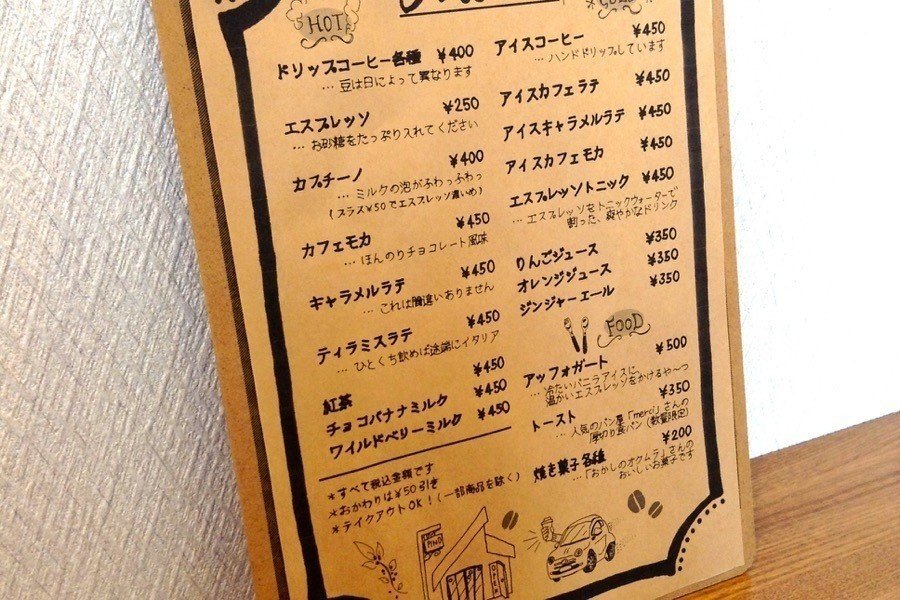 HOT
ドリップコーヒー各種 ¥400
… 豆は日によって異なります
エスプレッソ ¥250
… お砂糖をたっぷり入れてください
カプチーノ ¥400
… ミルクの泡がふわっふわっ
(プラス¥50でエスプレッソ濃いめ)
カフェモカ ¥450
… ほんのりチョコレート風味
キャラメルラテ ¥450
… これは間違いありません
ティラミスラテ ¥450
… ひとくち飲めば途端にイタリア
紅茶 ¥450
チョコバナナミルク ¥450
ワイルドベリーミルク ¥450
*すべて税込金額です
*おかわりは¥50引き
*テイクアウトOK!(一部商品を除く)
COLD
アイスコーヒー ¥450
… ハンドドリップしています
アイスカフェラテ ¥450
アイスキャラメルラテ ¥450
アイスカフェモカ ¥450
エスプレッソトニック ¥450
… エスプレッソをトニックウォーターで
割った、爽やかなドリンク
りんごジュース ¥350
オレンジジュース ¥350
ジンジャーエール ¥350
FOOD
アッフォガート ¥500
… 冷たいバニラアイスに、
温かいエスプレッソをかけるや〜つ
トースト ¥350
… 人気のパン屋「merci」さんの
厚切り食パン(数量限定)
焼き菓子各種 ¥200
… 「おかしのオクムラ」さんの
おいしいお菓子です
PINO
OPEN